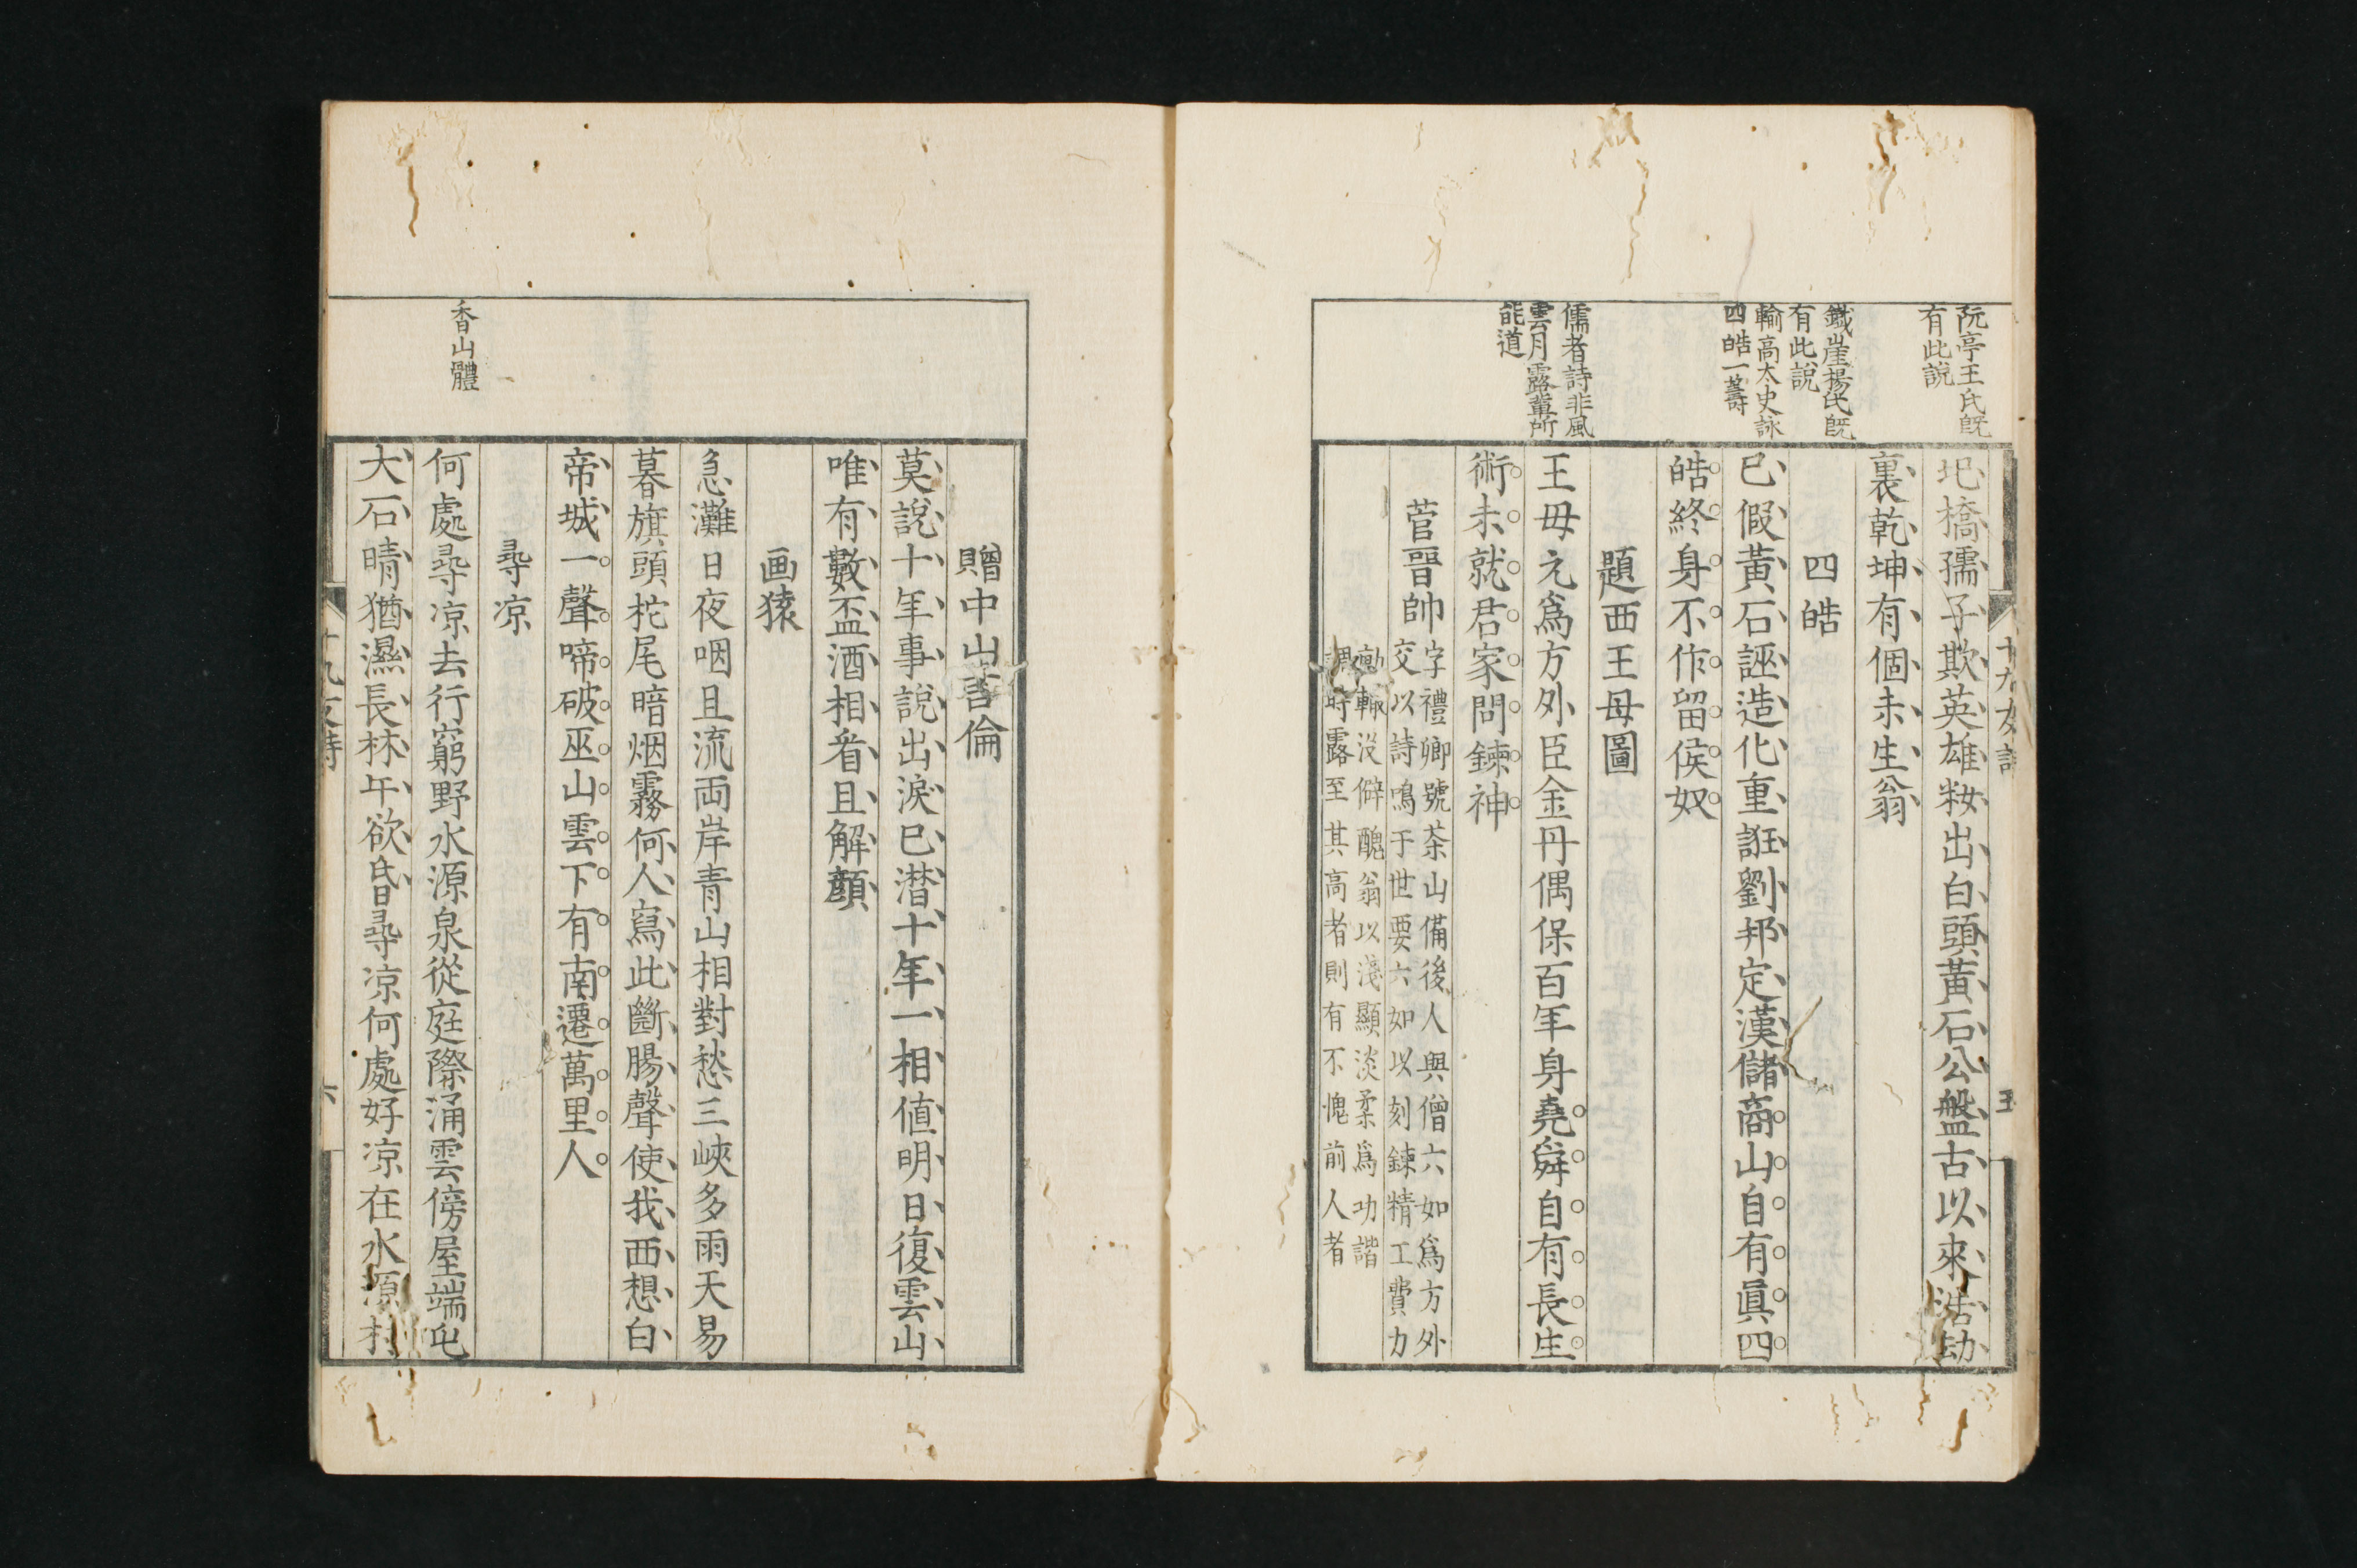 阮亭王氏旣
有此說
鐵崖楊氏旣
有此說
輸高太史詠
四皓一籌
儒者詩非風
雲月露輩所
能道
圯橋孺子欺英雄粧出白頭黃石公盤古以來浩劫
裏乾坤有個未生翁
四皓
已假黃石誣造化重誑劉邦定漢儲商山自有眞四
皓終身不作留侯奴
題西王母圖
王母元爲方外臣金丹偶保百年身堯舜自有長生
術未就君家問鍊神
菅晉帥
字禮卿號茶山備後人與僧六如爲方外
交以詩鳴于世要六如以刻鍊精工費力
動輙沒僻醜翁以淺顯淡柔爲功諧
調時露至其高者則有不愧前人者
十九友詩
五
贈中山善倫
莫說十年事說出淚已潜十年一相値明日復雲山
唯有數盃酒相看且解顏
画猿
急灘日夜咽且流両岸青山相對愁三峽多雨天易
暮旗頭柁尾暗烟霧何人寫此斷腸聲使我西想白
帝城一聲啼破巫山雲下有南遷萬里人
香山體
尋凉
何處尋凉去行窮野水源泉從庭際涌雲傍屋端屯
大石晴猶濕長林午欲昏尋凉何處好凉在水源村
十九友詩
六